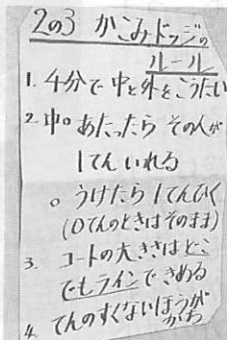 2の3 かこみドッジの
ルール
1. 4分で 中と外をこうたい
2. 中。あたったら その人が
1てん いれる
。うけたら 1てんひく
(0てんのときはそのまま)
3. コートの大きさはどこ
でもラインできめる
4. てんのすくないほうが
かち